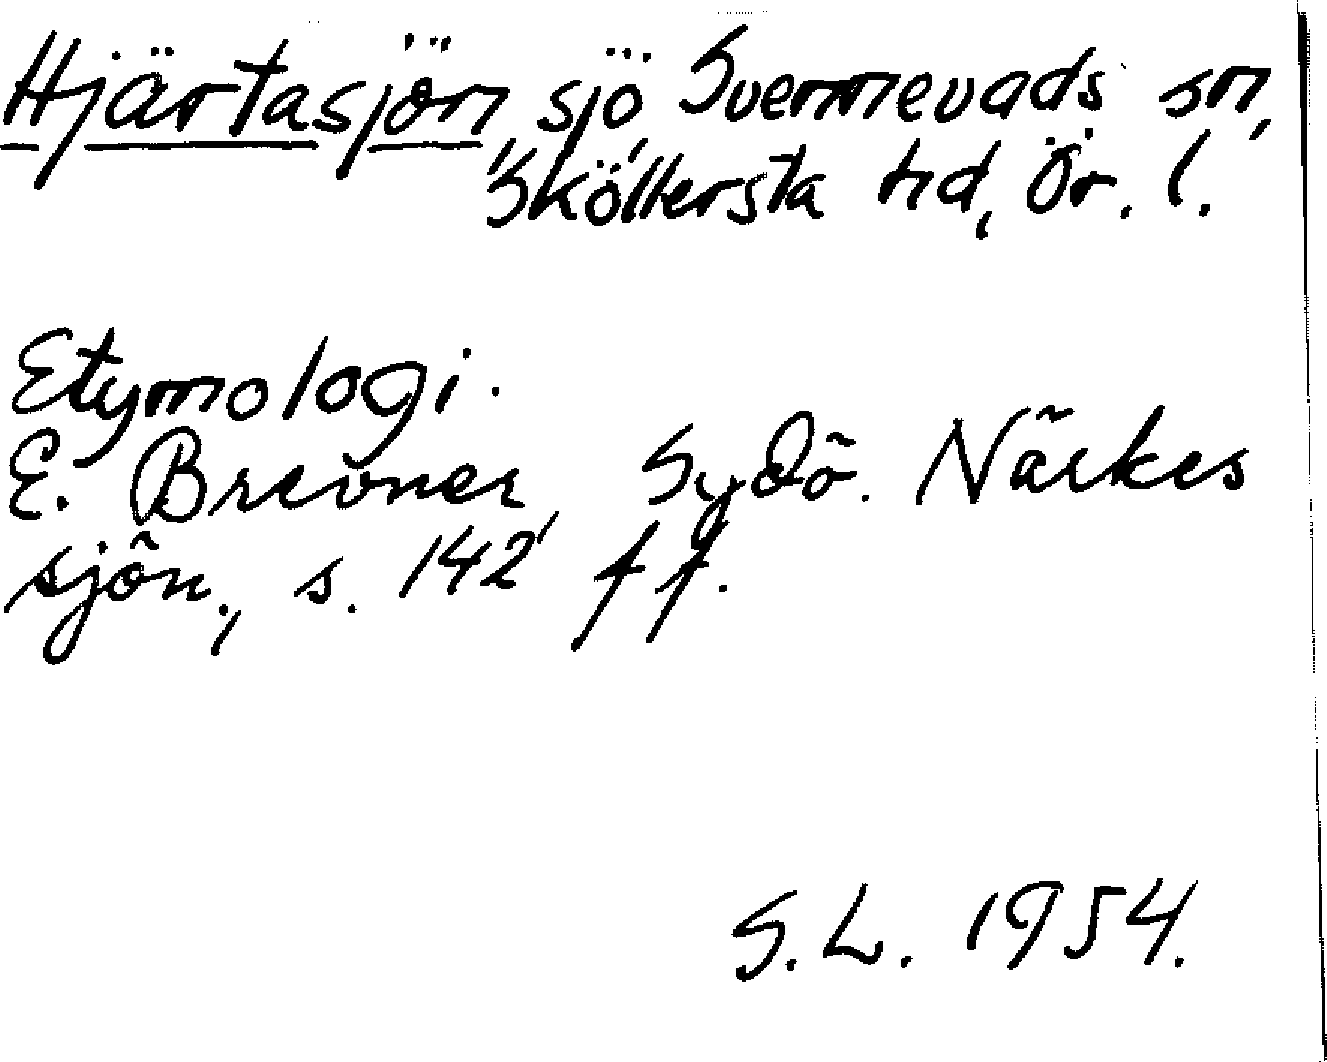 Hjärtasjön, sjö, Svennevads sn,
Sköllersta hd, Ör. l.
Etymologi.
E. Brevner, Sydö. Närkes
sjön., s. 142 ff.
S. L. 1954.